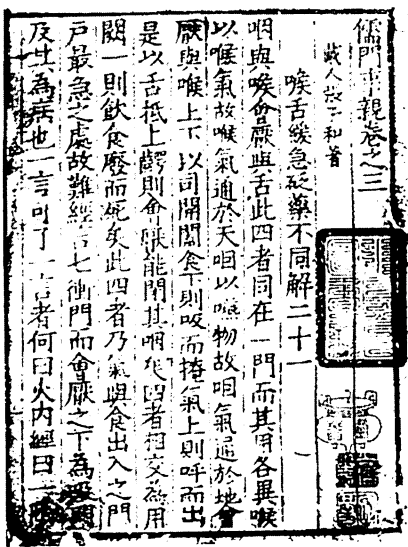 儒門事親卷之三
戴人張子和著
喉舌緩急砭藥不同解二十一
咽與喉會厭與舌此四者同在一門而其用各異喉
以喉氣故喉氣通於天咽以嚥物故咽氣通於地會
厭與喉上下以司開闔食下則吸而掩氣上則呼而出
是以舌抵上齶則會厭能閉其咽矣四者相交為用
闕一則飲食廢而死矣此四者乃氣與食出入之門
戶最急之處故難經言七衝門而會厭之下為吸門
及其為病也一言可了一言者何曰火內經曰一